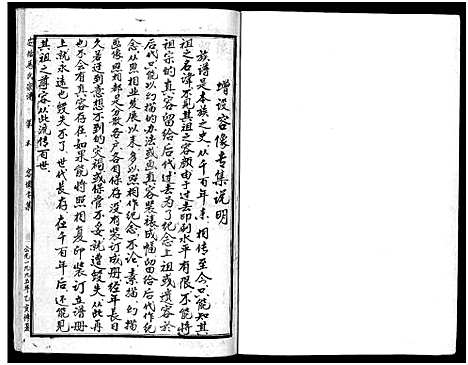 增设容像专集说明
族谱是本族之史，从千百年来，相传至今，只能知其
祖之名讳，不见其祖之容颜，由于过去印刷水平有限，不能将
祖宗的真容留给后代，过去为了纪念上祖或遗容于
后代，只能以幻描的办法，或画真容装裱成幅，留给后代作纪
念，从照相业发展以来，多以照相作纪念，不论素描、幻描
画像、照相都是分散各户各自保存，没有装订成册，经年长日
久，若遇到意想不到的灾祸，或保管不妥，就遭毁失，从此再
也不会有真容存在，如果能将照相复印装订立谱册
上，就永远也毁失不了，世代长存，在千百年后，还能见
其祖之尊容，从此流传百世。